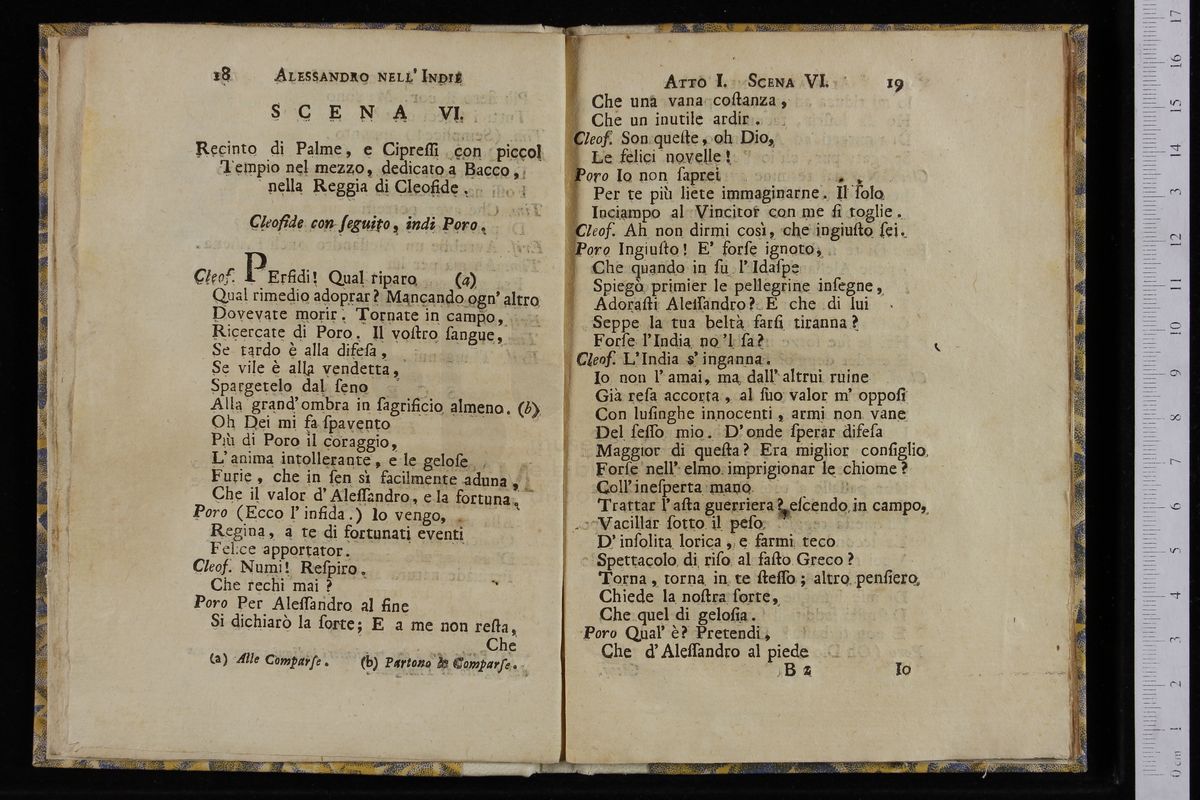 18 ALESSANDRO NELL' INDIE
SCENA VI.
Recinto di Palme, e Cipreſſi con piccol
Tempio nel mezzo, dedicato a Bacco,
nella Reggia di Cleofide.
Cleofide con ſeguito, indi Poro.
Cleof. PErfidi! Qual riparo (a)
Qual rimedio adoprar? Mancando ogn' altro
Dovevate morir. Tornate in campo,
Ricercate di Poro. Il voſtro ſangue,
Se tardo è alla difeſa,
Se vile è alla vendetta,
Spargetelo dal ſeno
Alla grand' ombra in ſagrificio almeno. (b)
Oh Dei mi fa ſpavento
Più di Poro il coraggio,
L' anima intollerante, e le geloſe
Furie, che in ſen sì facilmente aduna,
Che il valor d' Aleſſandro, e la fortuna.
Poro (Ecco l' infida.) Io vengo,
Regina, a te di fortunati eventi
Felice apportator.
Cleof. Numi! Reſpiro.
Che rechi mai?
Poro Per Aleſſandro al fine
Si dichiarò la ſorte; E a me non reſta,
Che
(a) Alle Comparſe. (b) Partono le Comparſe.
ATTO I. SCENA VI. 19
Che una vana coſtanza,
Che un inutile ardir.
Cleof. Son queſte, oh Dio,
Le felici novelle!
Poro Io non ſaprei
Per te più liete immaginarne. Il ſolo
Inciampo al Vincitor con me ſi toglie.
Cleof. Ah non dirmi così, che ingiuſto ſei.
Poro Ingiuſto! E' forſe ignoto,
Che quando in ſu l' Idaſpe
Spiegò primier le pellegrine inſegne,
Adoraſti Aleſſandro? E che di lui
Seppe la tua beltà farſi tiranna?
Forſe l' India no 'l ſa?
Cleof. L' India s' inganna.
Io non l' amai, ma dall' altrui ruine
Già reſa accorta, al ſuo valor m' oppoſi
Con luſinghe innocenti, armi non vane
Del ſeſſo mio. D' onde ſperar difeſa
Maggior di queſta? Era miglior conſiglio
Forſe nell' elmo imprigionar le chiome?
Coll' ineſperta mano
Trattar l' aſta guerriera? eſcendo in campo,
Vacillar ſotto il peſo
D' inſolita lorica, e farmi teco
Spettacolo di riſo al faſto Greco?
Torna, torna in te ſteſſo; altro penſiero
Chiede la noſtra ſorte,
Che quel di geloſia.
Poro Qual' è? Pretendi,
Che d' Aleſſandro al piede
B 2 Io